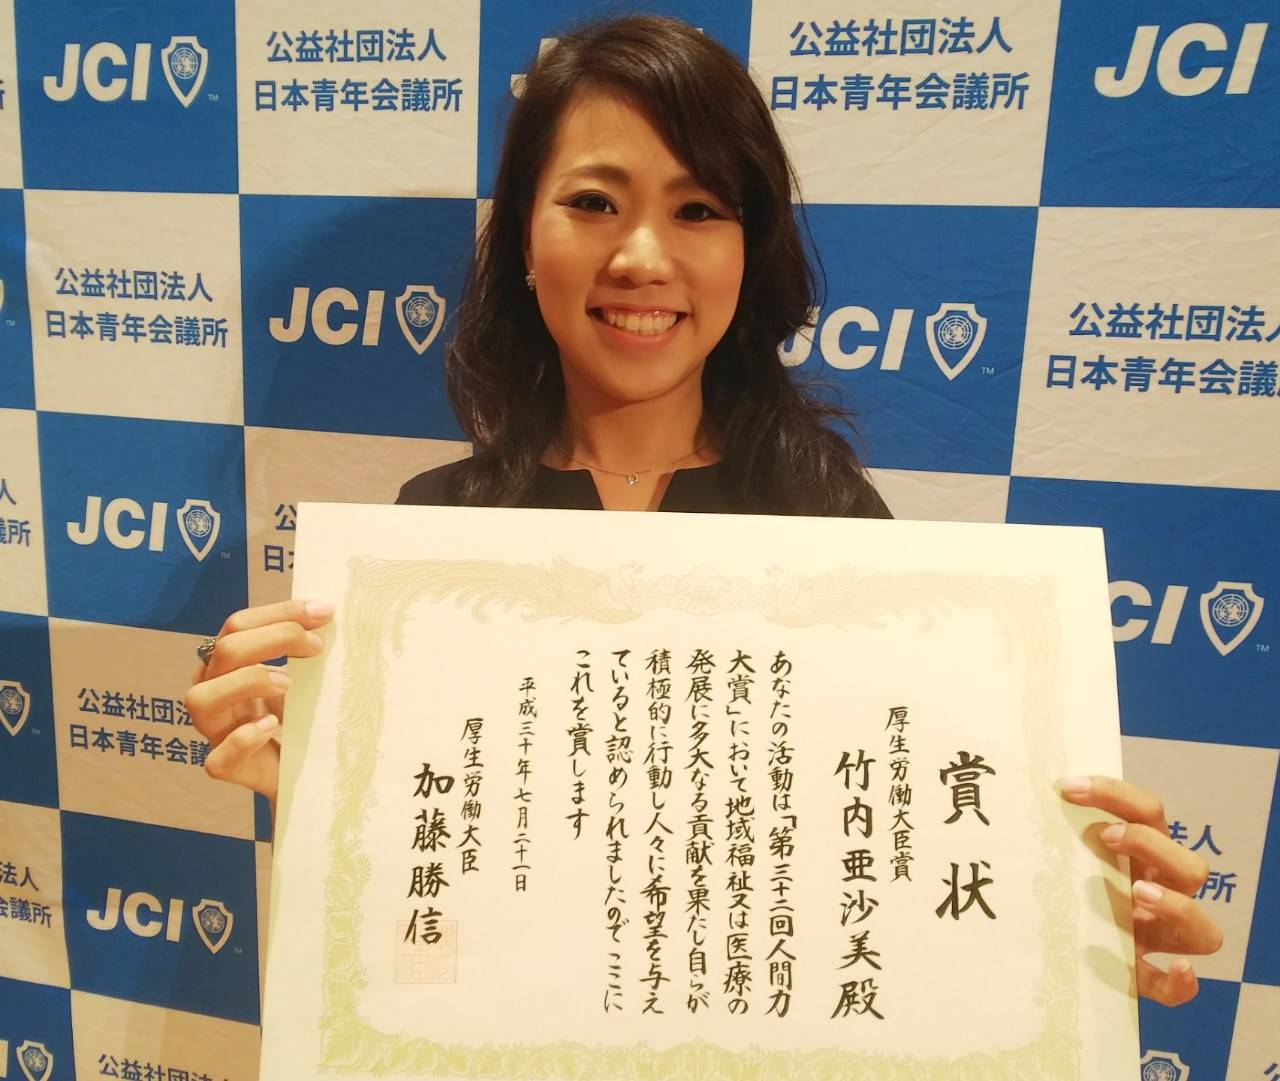 JCI
公益社団法人
日本青年会議所
JCI
公益社団法人
日本青年会議所
JCI
公益社団法人
日本青年会議所
JCI
JCI
公益社団法人
日本青年会議所
JCI
JCI
公益社団法人
日本青年会議所
JCI
賞状
厚生労働大臣賞
竹内亜沙美殿
あなたの活動は「第三十二回人間力
大賞」において地域福祉又は医療の
発展に多大なる貢献を果たし自らが
積極的に行動し人々に希望を与え
ていると認められましたのでここに
これを賞します
平成三十年七月二十一日
厚生労働大臣
加藤勝信